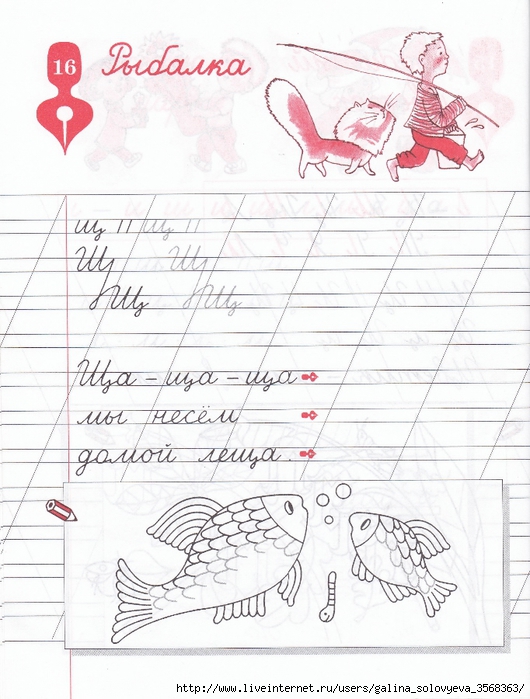 16 Рыбалка
щ щ
Щ Щ
Щ Щ
Ща – ща – ща
мы несём
домой леща.
http://www.liveinternet.ru/users/galina_solovyeva_3568363/